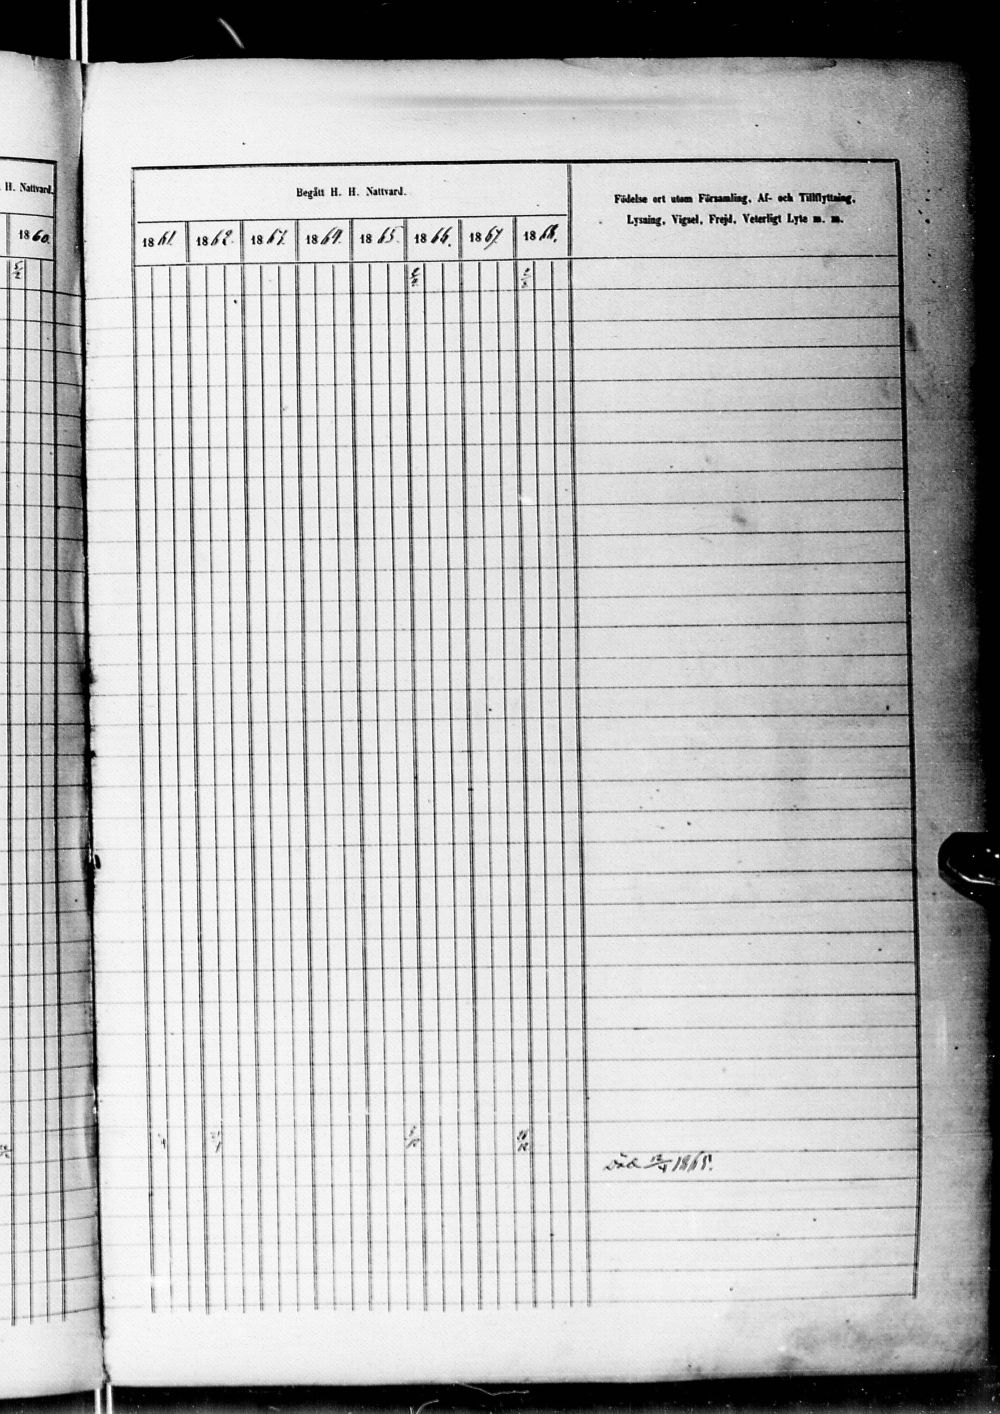 H. Nattvard.
1860.
Begått H. H. Nattvard.
Födelse ort utom Församling, Af- och Tillflyttning,
Lysning, Vigsel, Frejd, Veterligt Lyte m. m.
1861. 1862. 1863. 1864. 1865. 1866. 1867 1868.
5/2
Död 1865.